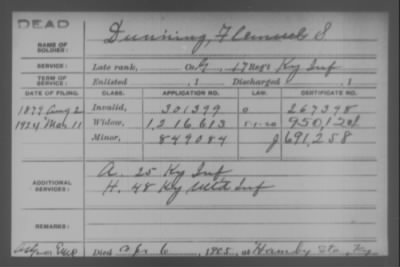 DEAD
NAME OF SOLDIER: Dunning, Flemuel S
SERVICE: Late rank, Co. G, 17 Reg't Ky Inf
TERM OF SERVICE: Enlisted , 1 Discharged , 1
DATE OF FILING. CLASS. APPLICATION NO. LAW. CERTIFICATE NO.
1879 Aug 2 Invalid, 301399 0 267398
1924 Mar 11 Widow, 1,216,613 950,
Minor, 849084 691,258
ADDITIONAL SERVICES: A. 25 Ky Inf
H. 48 Ky Mtd Inf
REMARKS:
Died Apr 6, 1905, at Hamby Sta, Ky.